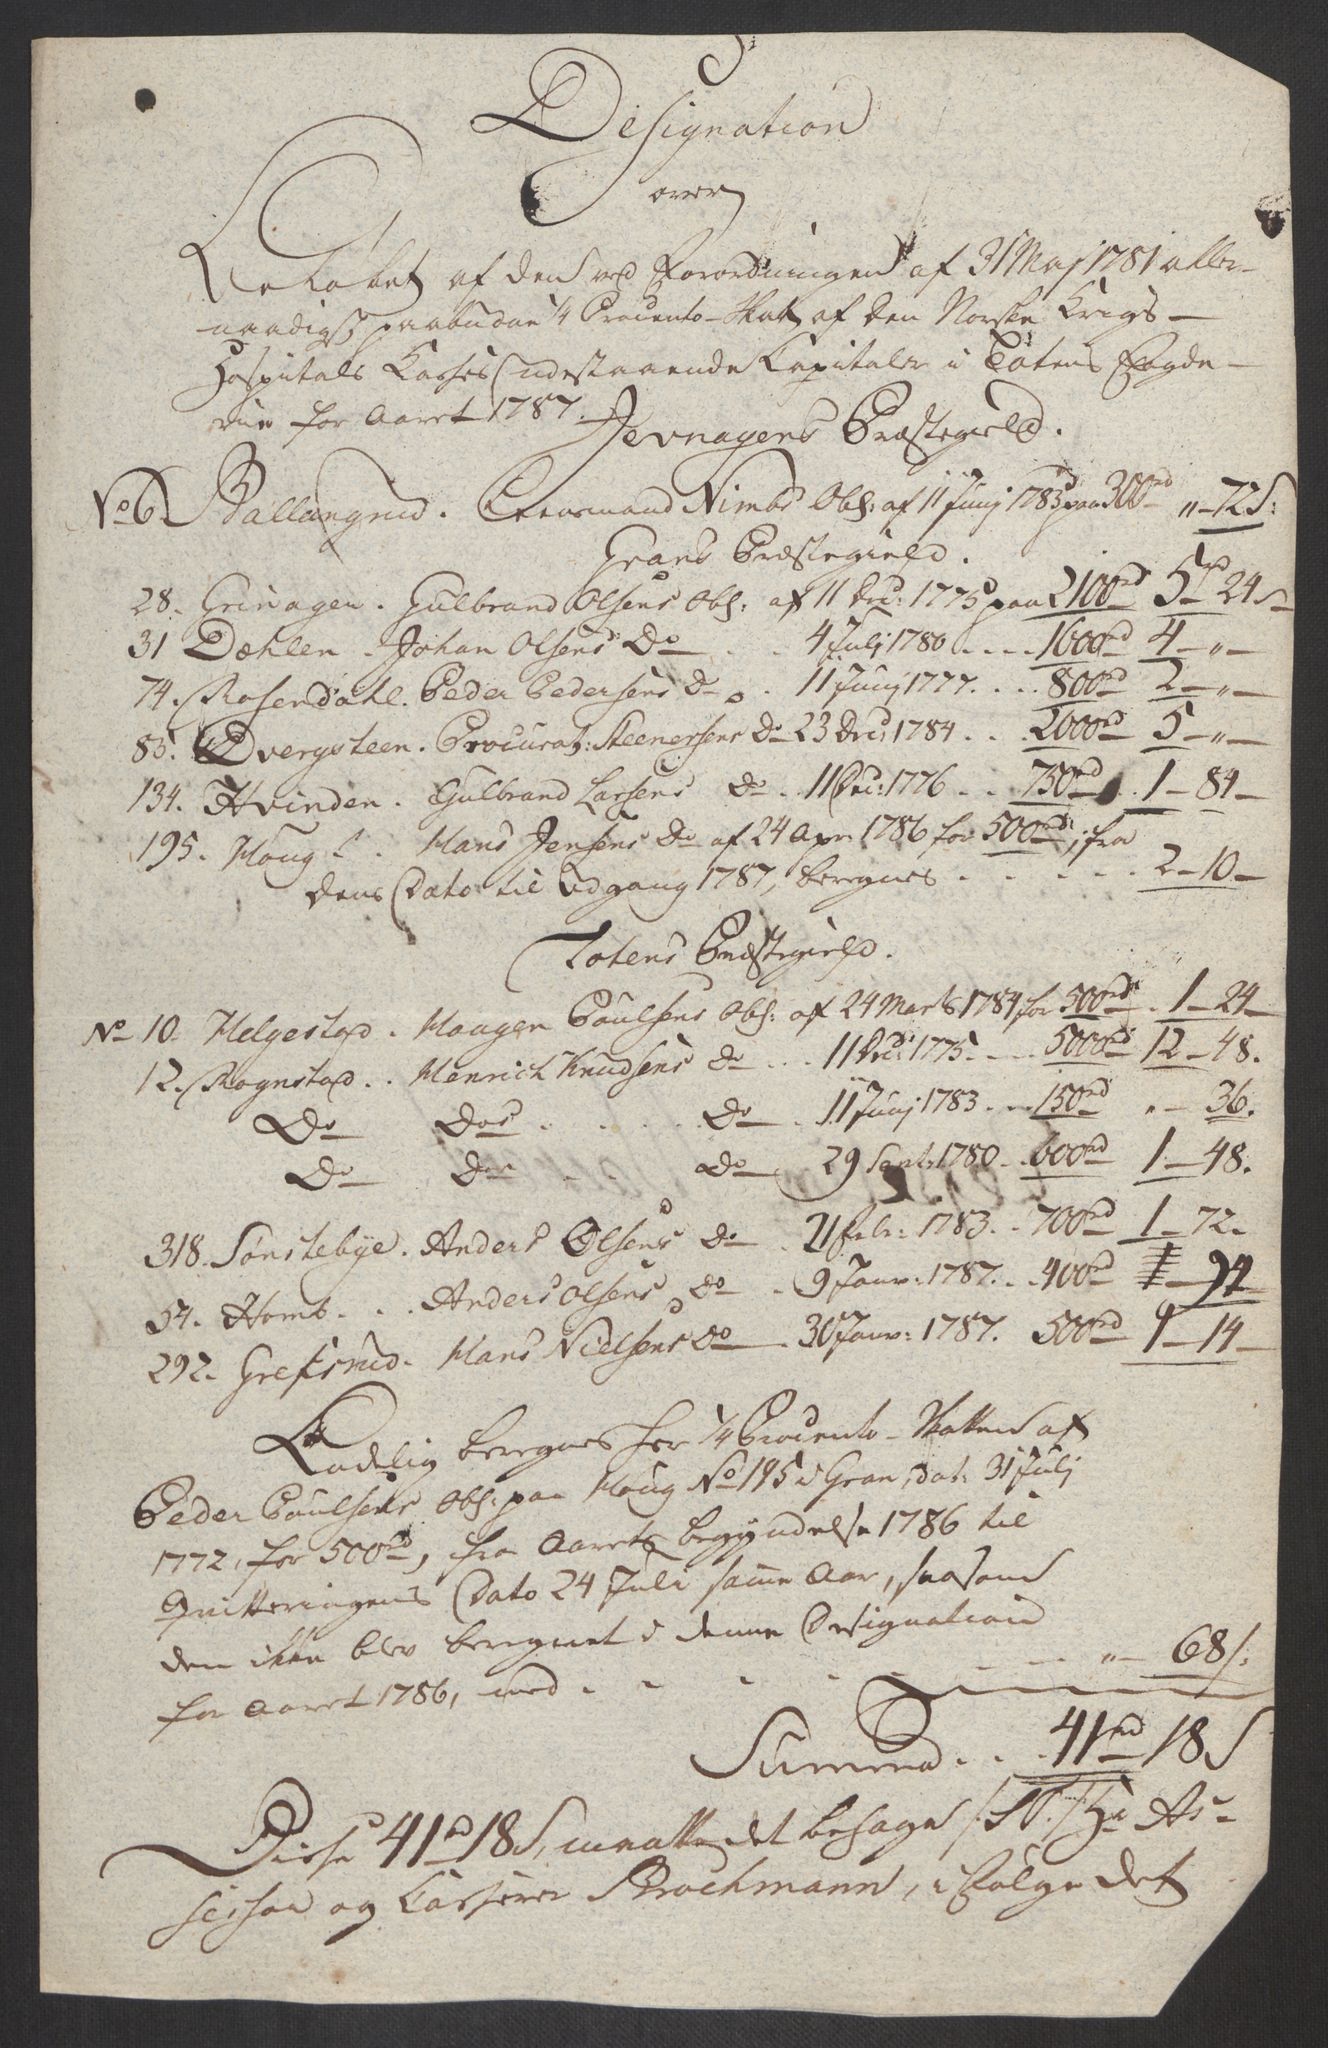 Designation
over
Beløbet af den ved Forordningen af 31 Maj 1781 aller-
naadigst paabudne 1/4 Procento-Skat af den Norske Krigs-
Hospitals Casses udestaaende Capitaler i Totens Fogde-
rie for Aaret 1787.
Jevnagers Præstegield.
No 6. Ballangrud. Lensmand Nimbs Obl: af 11 Junj 1783 paa 300rd „ - 72 S:
Grans Præstegield.
28. Grinagen. Gulbrand Olsens Obl: af 11 Dec: 1775 paa 2100rd 5rd 24 S
31 Dæhlen. Johan Olsens Do . . 4 Julj 1780 . . . . 1600rd 4 - „ -
74. Rosendahl. Peder Pedersens Do . 11 Junj 1777. . . . 800rd 2 - „ -
85. Dvergsteen. Procurat: Steenersens Do 23 Dec: 1784 . . 2000rd 5 - „ -
134. Hvinden. Gulbrand Larsens Do . . 11 Dec: 1776 . . 750rd . . 1 - 84 -
195. Houg . . Hans Jensens Do af 24 Apr 1786 for 500rd; fra
dens Dato til Udgang 1787, beregnes . . . . . . 2 - 10 -
Totens Præstegield.
No 10. Helgestad. Haagen Poulsens Obl: af 24 Marts 1784 for 500rd . 1 - 24
12. Rognstad . . Henrich Knudsens Do . . . 11 Dec: 1775. . . . 5000rd 12 - 48.
Do Dos . . . . . Do . 11 Junj 1783 . . . 150rd „ - 36.
Do Dos . . Do 29 Sept: 1780 . . 600rd 1 - 48.
318. Sønstebye. Anders Olsens Do . 21 Febr: 1783. . 700rd 1 - 72 -
54. Homb . . . Anders Olsens Do . 9 Janv: 1787. . . 400rd - 94
292. Grefsrud. Hans Nielsens Do 30 Janv: 1787. 500rd 1 - 14 -
Endelig beregnes her 1/4 Procento-Skatten af
Peder Poulsens Obl: paa Houg No 195 i Gran, dat: 31 Julj
1772, for 500rd, fra Aarets Begyndelse 1786 til
Qvitteringens Dato 24 Juli samme Aar, saasom
den ikke blev beregnet i denne Designation
for Aaret 1786, med . . . . . . . . „ - 68 S:
Summa . . . 41rd 18 S
Disse 41rd 18 S, maatte det behage /: S. T. :/ Hr As-
sessor og Casserer Brochmann, i Følge det